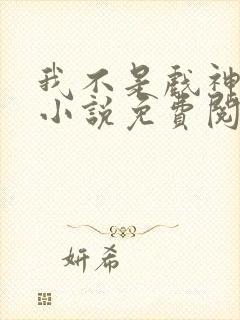 我不是戲神
小說免費閱
妍希